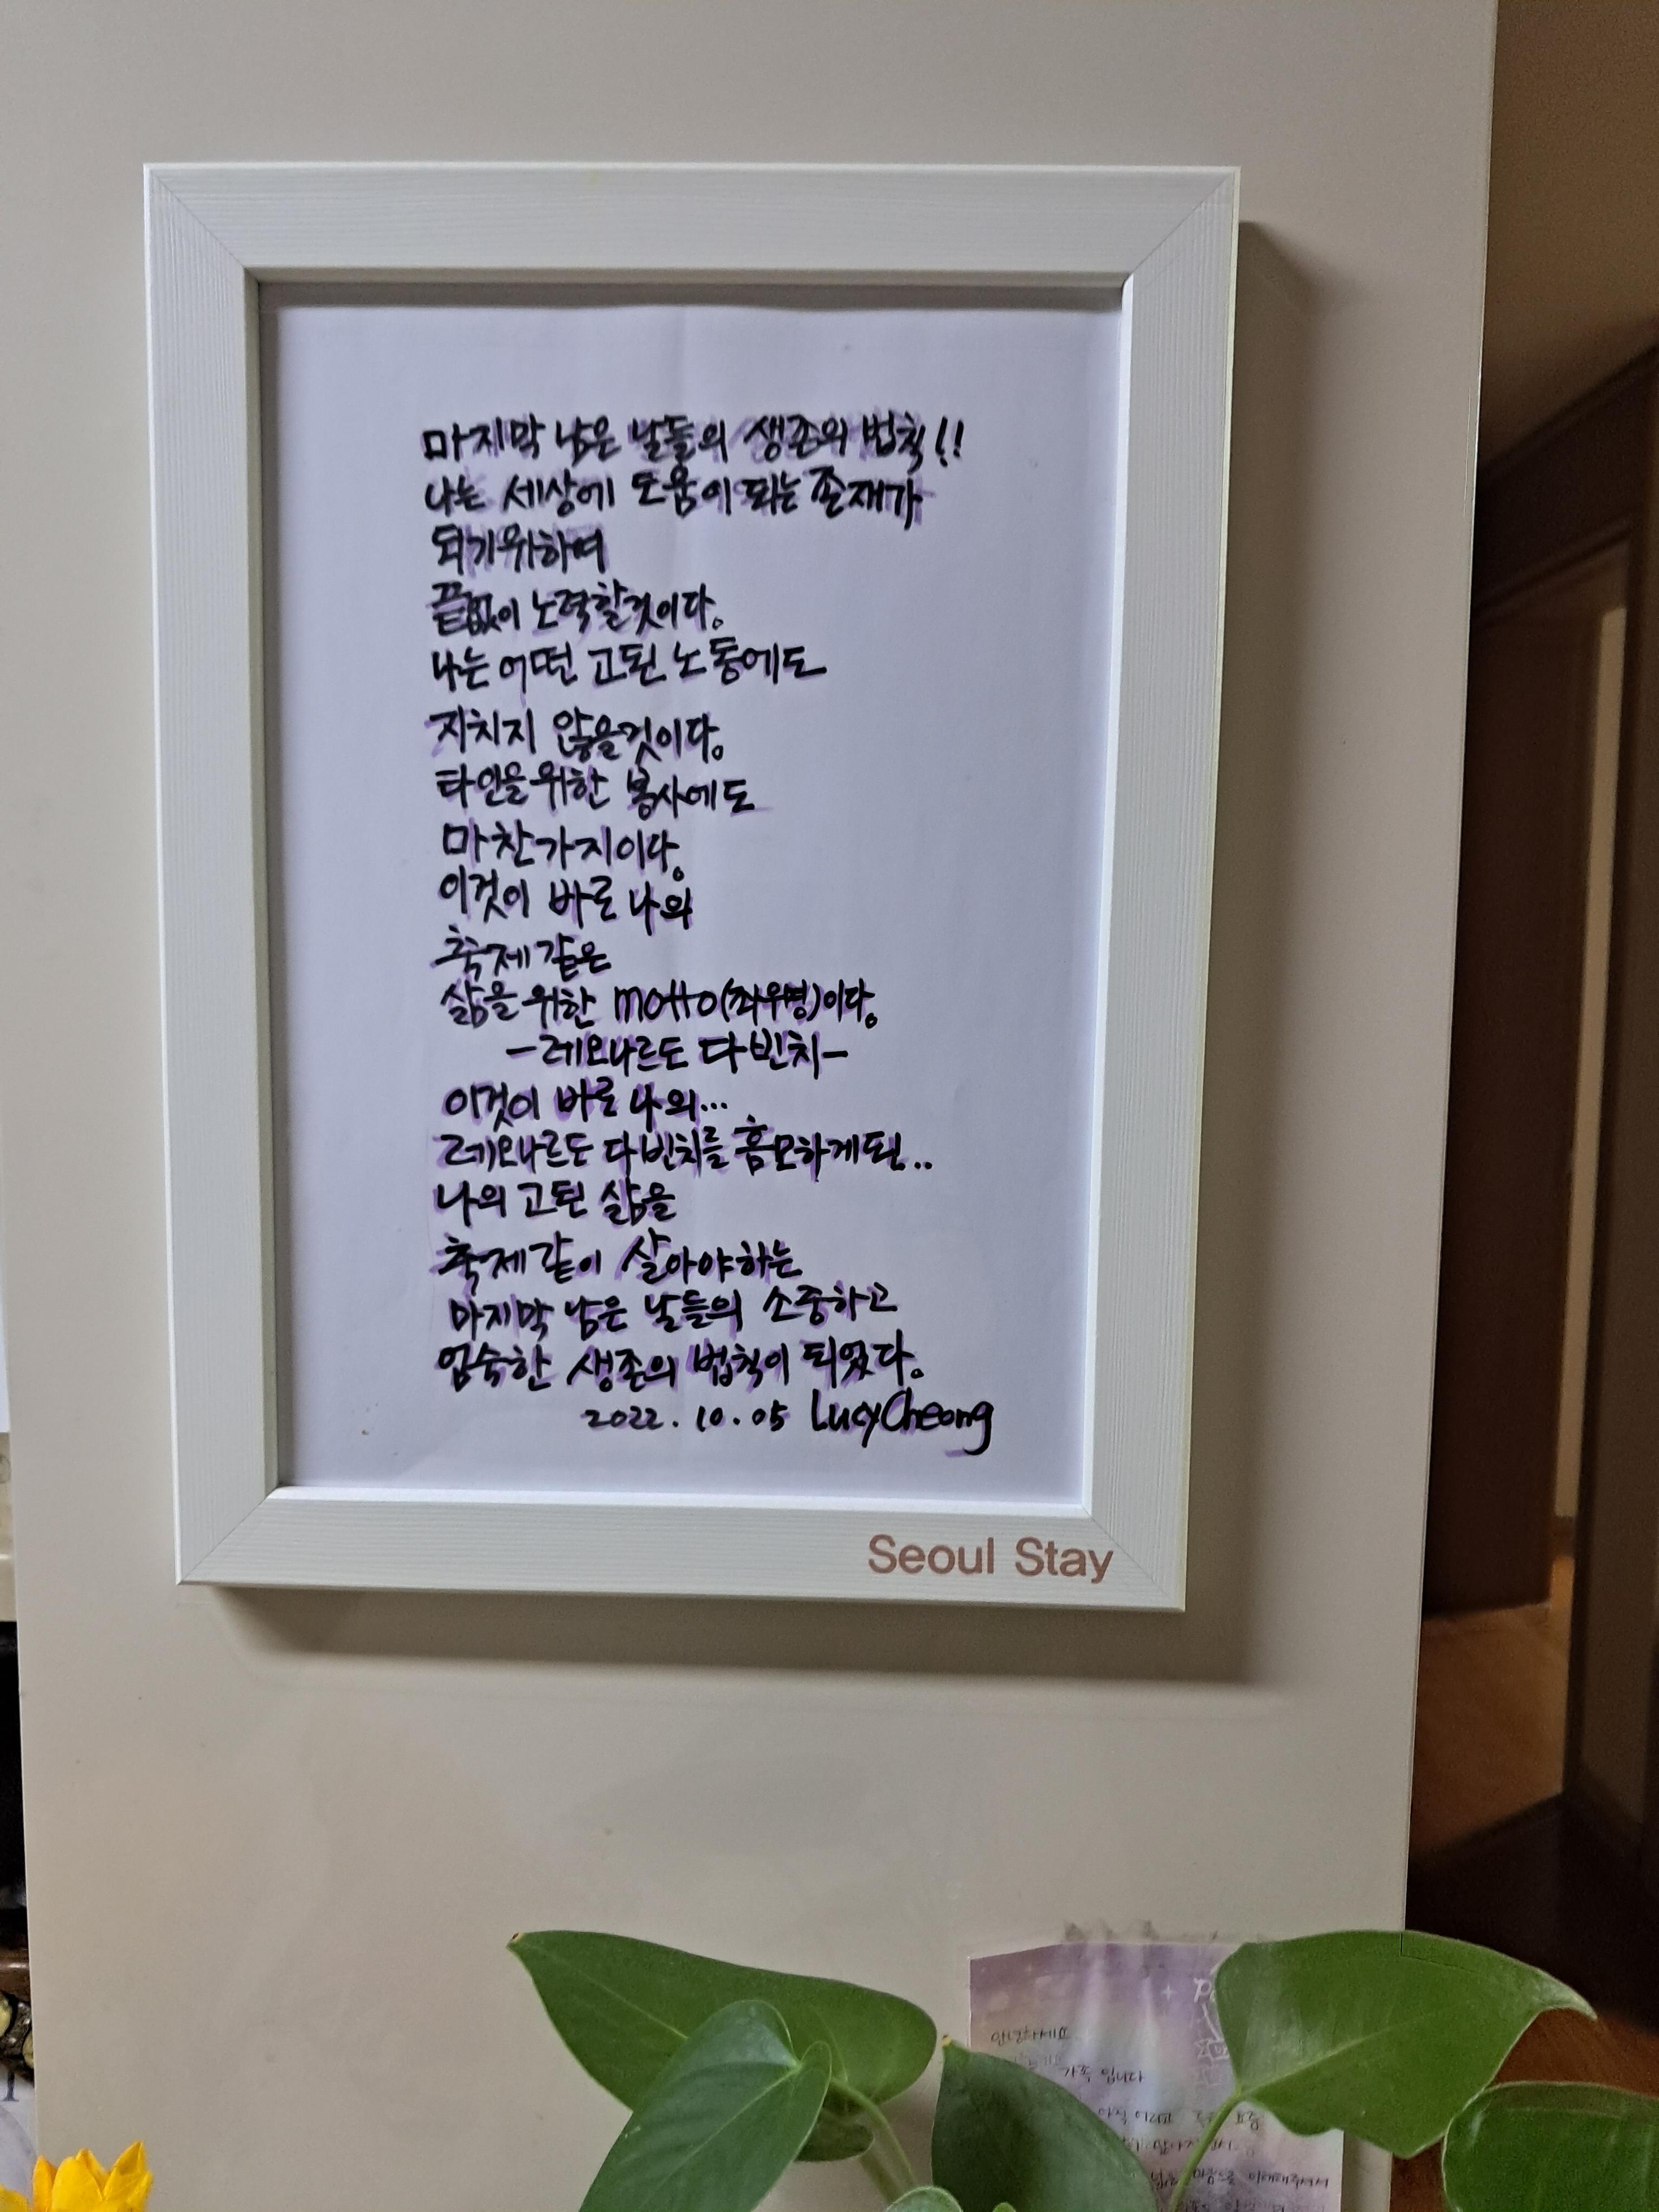 마지막 남은 날들의 생존의 법칙!!
나는 세상에 도움이 되는 존재가
되기위하여
끝없이 노력할것이다.
나는 어떤 고된 노동에도
지치지 않을것이다.
타인을위한 봉사에도
마찬가지이다.
이것이 바로 나의
축제같은
삶을 위한 motto(좌우명)이다.
-레오나르도 다빈치-
이것이 바로 나의...
레오나르도 다빈치를 흠모하게된..
나의 고된 삶을
축제같이 살아야하는
마지막 남은 날들의 소중하고
엄숙한 생존의 법칙이 되었다.
2022.10.05 LucyCheong
Seoul Stay
안녕하세요
가족 입니다